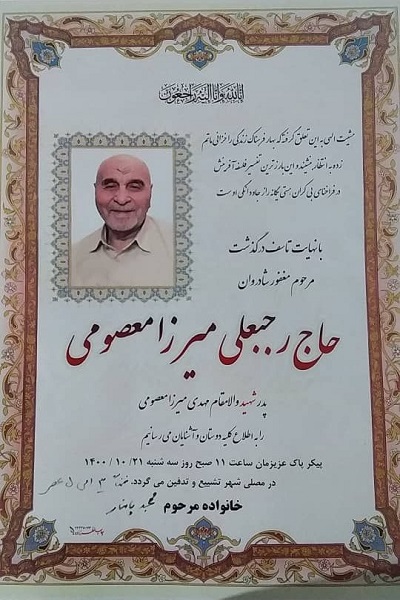 انا لله و انا الیه راجعون
مشیت الهی بر این تعلق گرفته که بهار فرحناک زندگی را خزانی ماتم
زده به انتظار بنشیند و این بارزترین تفسیر فلسفه آفرینش
در فراخنای بی کران هستی یگانه راز جاودانگی اوست
با نهایت تاسف درگذشت
مرحوم مغفور شادروان
حاج رجبعلی میرزا معصومی
پدر شهید والامقام مهدی میرزا معصومی
را به اطلاع کلیه دوستان و آشنایان می رسانیم
پیکر پاک عزیزمان ساعت ۱۱ صبح روز سه شنبه ۱۴۰۰/۱۰/۲۱
در مصلی شهر تشییع و تدفین می گردد.
خانواده مرحوم